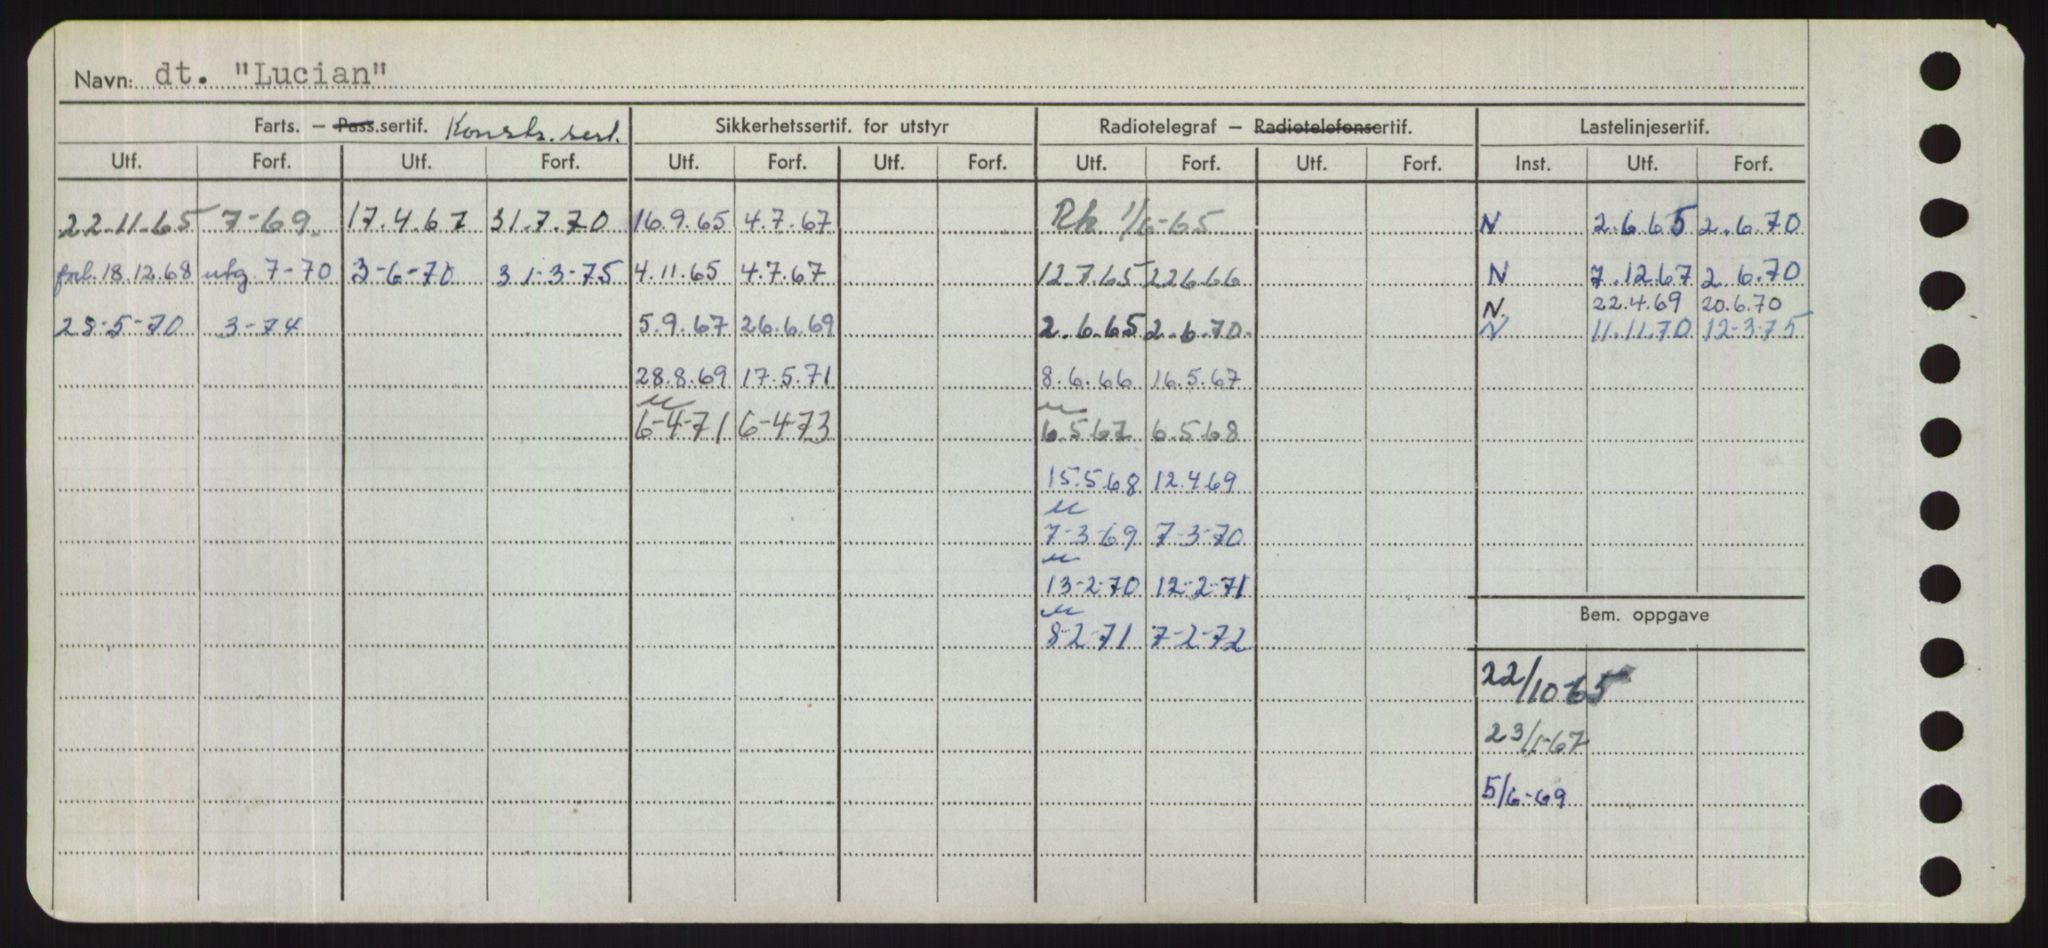 Navn: dt. "Lucian"
Farts. – Pass.sertif. Konstr. sert. Sikkerhetssertif. for utstyr Radiotelegraf – Radiotelefonsertif. Lastelinjesertif.
Utf. Forf. Utf. Forf. Utf. Forf. Utf. Forf. Utf. Forf. Utf. Forf. Inst. Utf. Forf.
22.11.65 7-69. 17.4.67 31.7.70 16.9.65 4.7.67 Rk 1/6-65 N 2.6.65 2.6.70
forl. 18.12.68 utg. 7-70 3-6-70 31-3-75 4.11.65 4.7.67 12.7.65 22.6.66 N 7.12.67 2.6.70
N. 22.4.69 20.6.70
28-5-70 3-74 5.9.67 26.6.69 2.6.65 2.6.70. N 11.11.70 12-3-75
28.8.69 17.5.71 8.6.66 16.5.67
6-4-71 6-4-73 6.5.67 6.5.68
15.5.68 12.4.69
7-3-69 7-3-70
13-2-70 12-2-71
Bem. oppgave
8-2-71 7-2-72
22/10-65
23/1-67
5/6-69